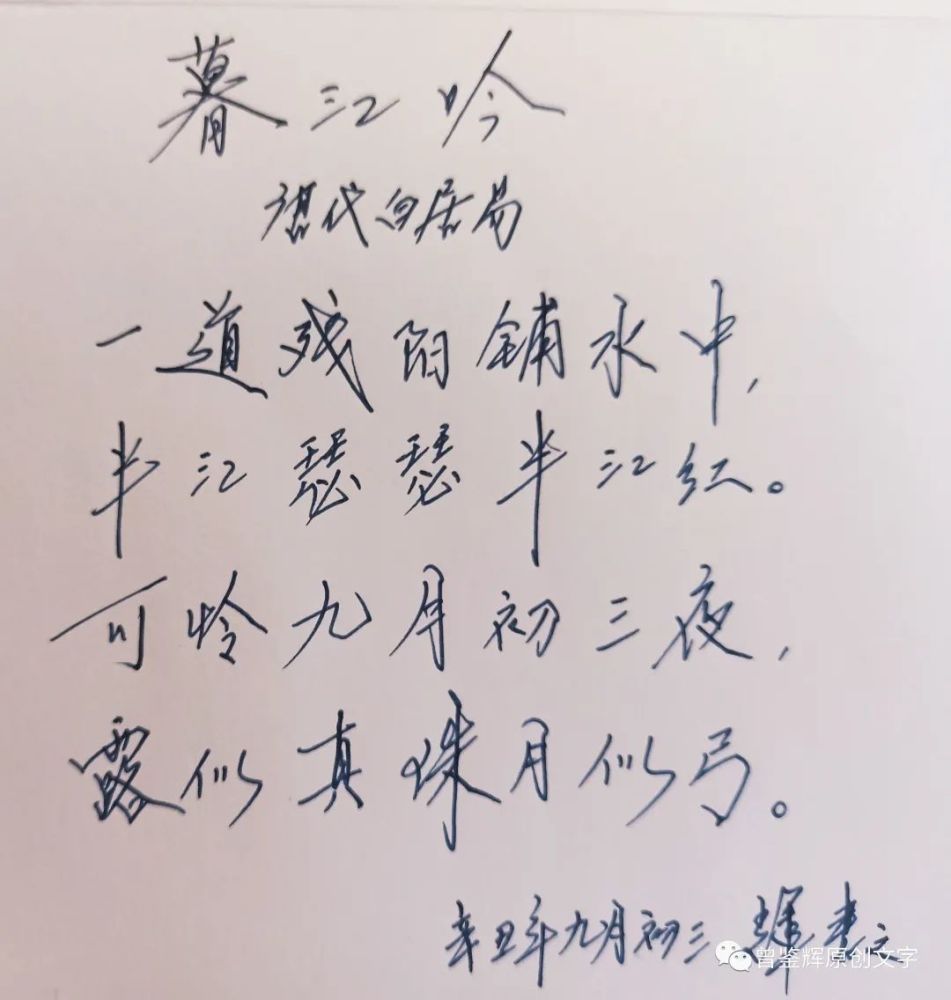 暮江吟
唐代白居易
一道残阳铺水中,
半江瑟瑟半江红。
可怜九月初三夜,
露似真珠月似弓。
辛丑年九月初三
曾鉴辉原创文字